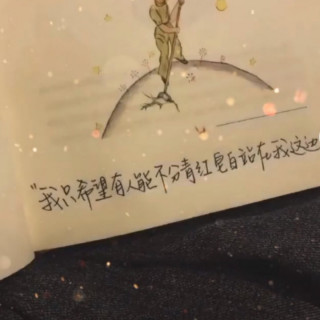 "我只希望有人能不分青红皂白站在我这边